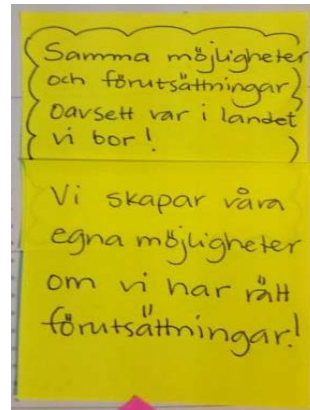 Samma möjligheter
och förutsättningar
oavsett var i landet
vi bor!
Vi skapar våra
egna möjligheter
om vi har rätt
förutsättningar!